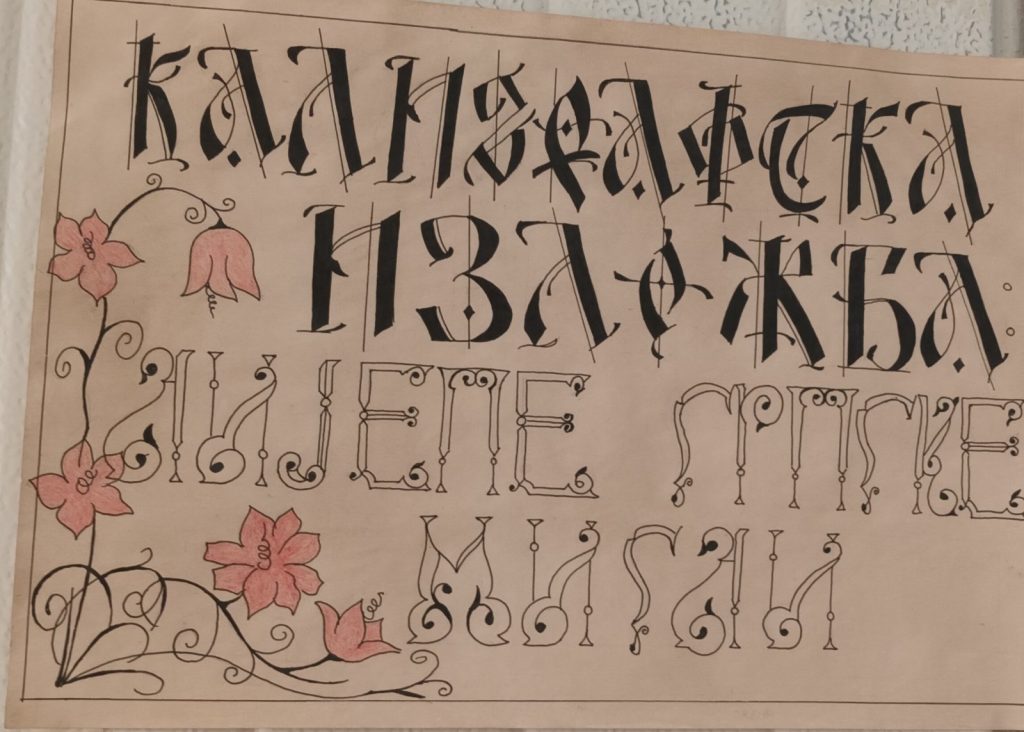 КАЛИГРАФСКА
ИЗЛОЖБА:
ЛИЈЕПЕ СРПСКЕ
МИСЛИ